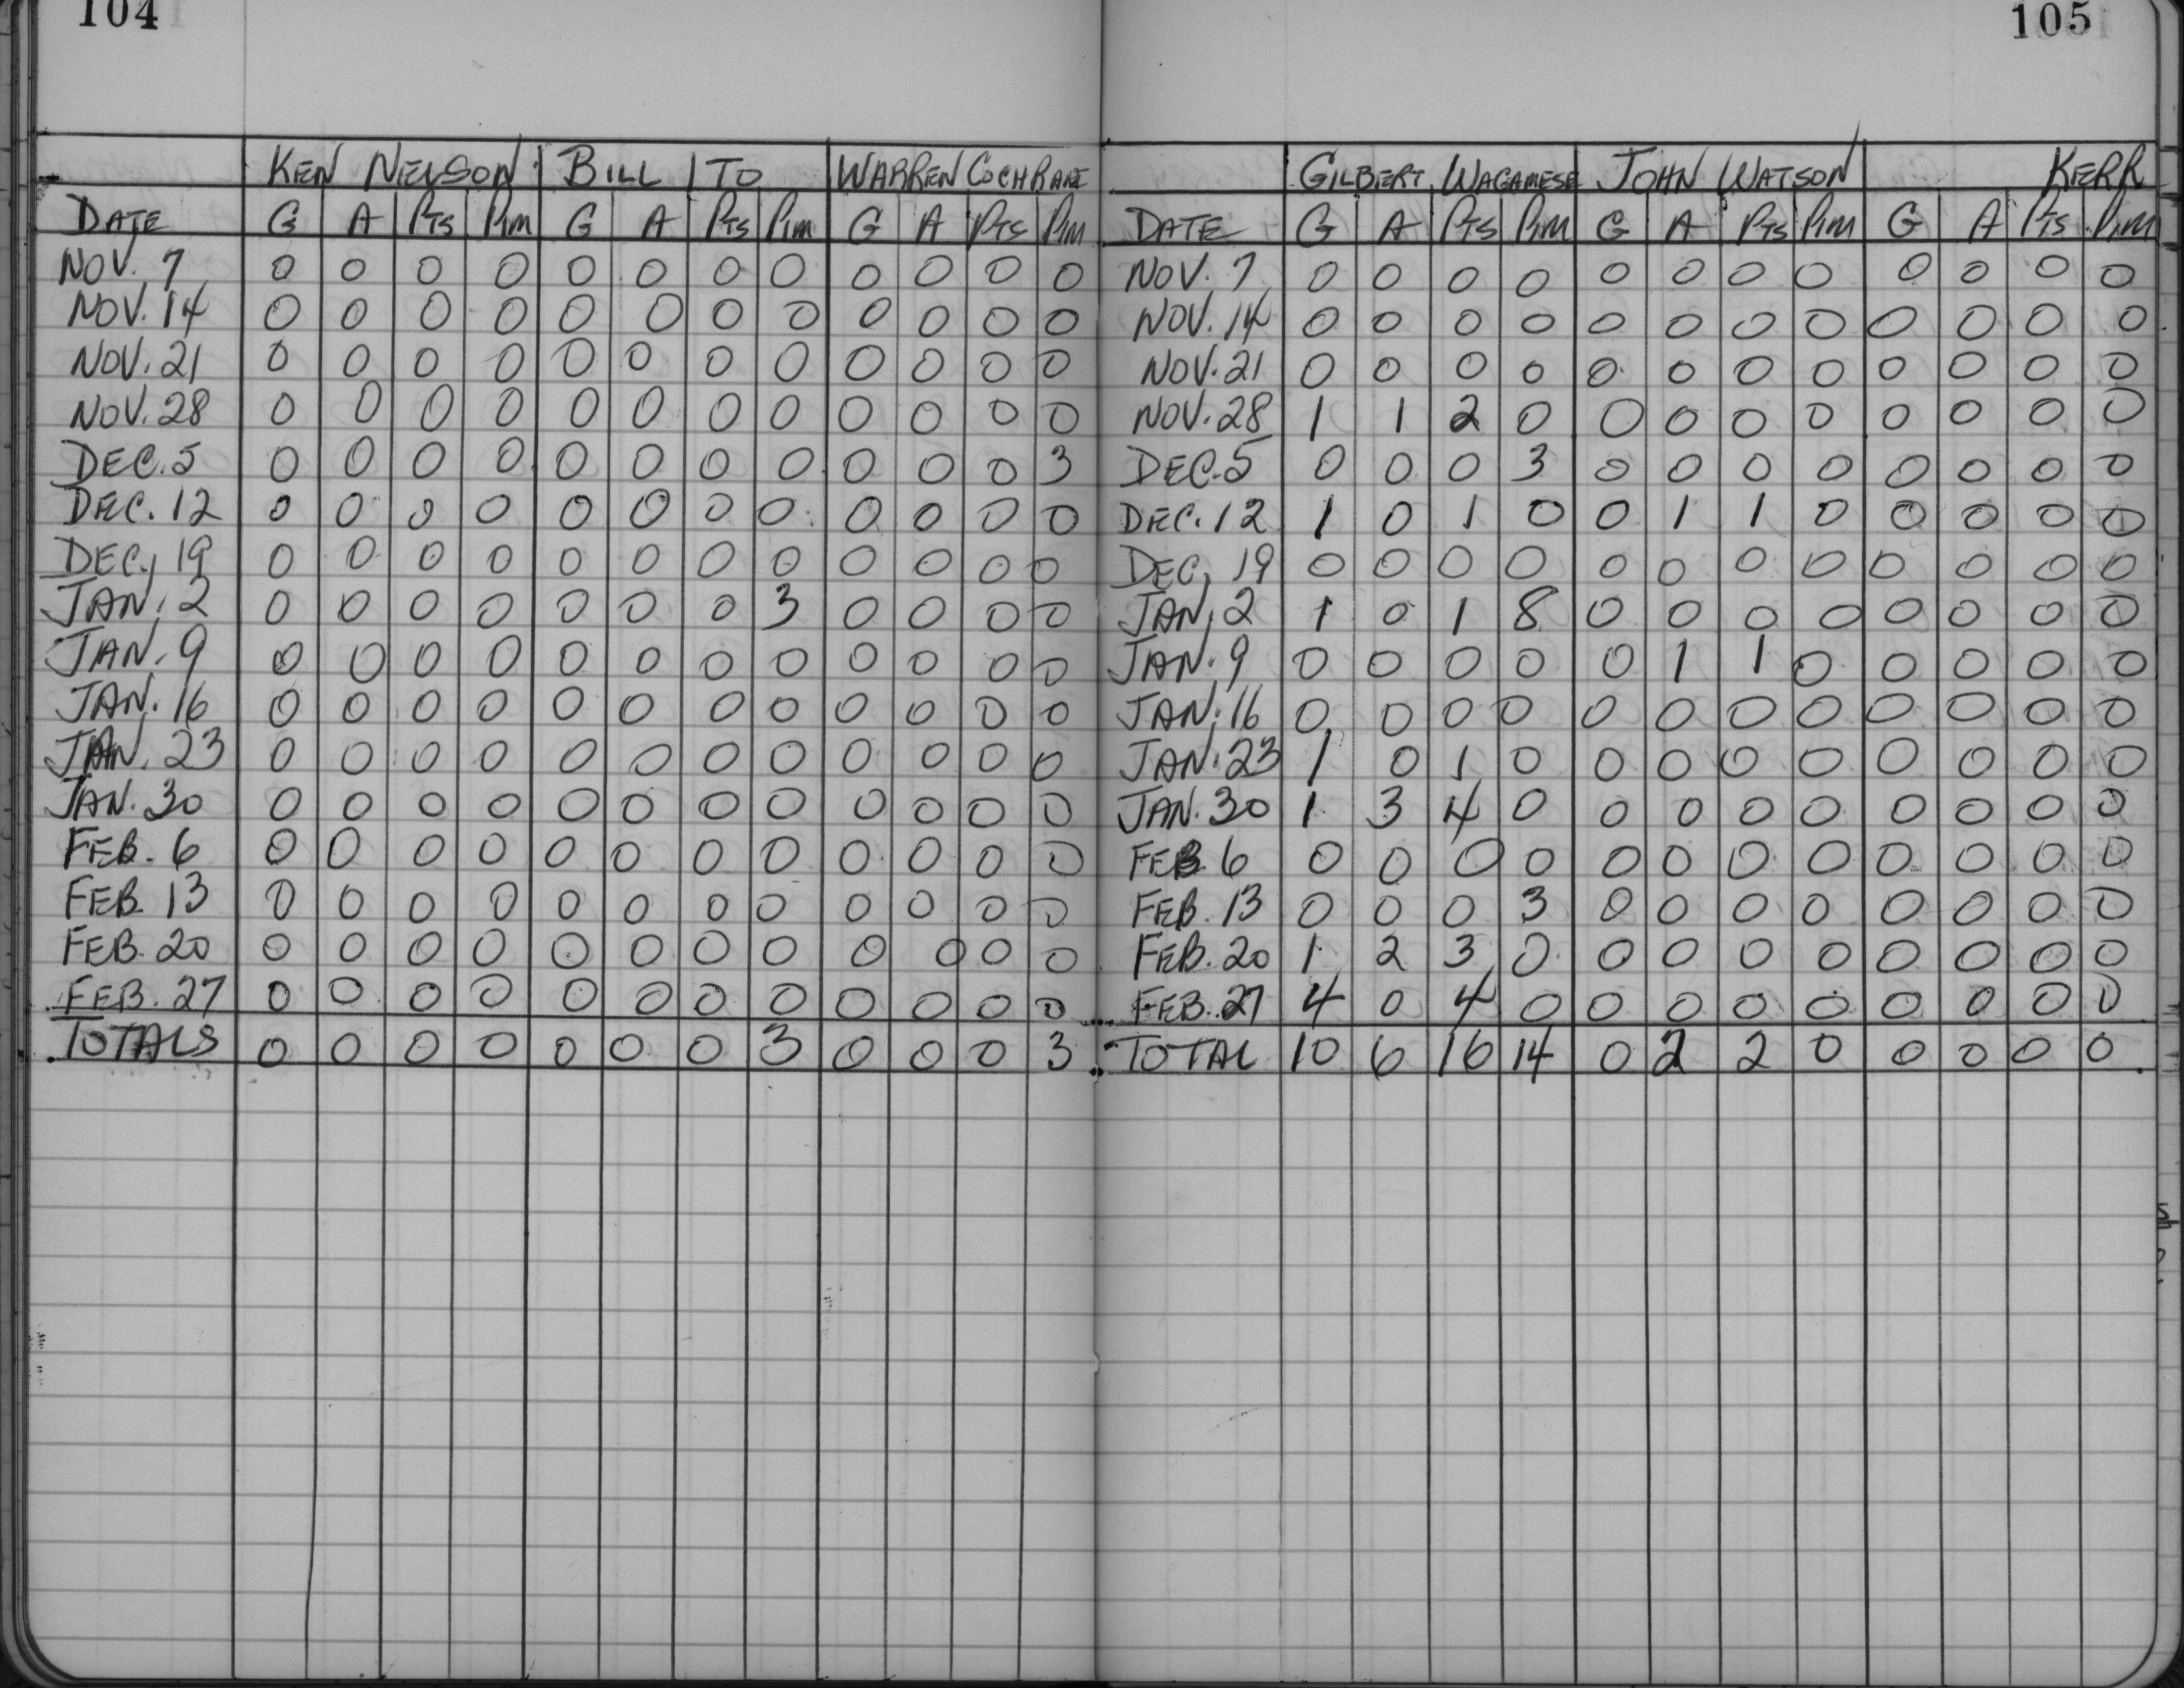 104
KEN NELSON BILL ITO WARREN COCHRANE
DATE G A PTS PIM G A PTS PIM G A PTS PIM
NOV. 7 0 0 0 0 0 0 0 0 0 0 0 0
NOV. 14 0 0 0 0 0 0 0 0 0 0 0 0
NOV. 21 0 0 0 0 0 0 0 0 0 0 0 0
NOV. 28 0 0 0 0 0 0 0 0 0 0 0 0
DEC. 5 0 0 0 0 0 0 0 0 0 0 0 3
DEC. 12 0 0 0 0 0 0 0 0 0 0 0 0
DEC. 19 0 0 0 0 0 0 0 0 0 0 0 0
JAN. 2 0 0 0 0 0 0 0 3 0 0 0 0
JAN. 9 0 0 0 0 0 0 0 0 0 0 0 0
JAN. 16 0 0 0 0 0 0 0 0 0 0 0 0
JAN. 23 0 0 0 0 0 0 0 0 0 0 0 0
JAN. 30 0 0 0 0 0 0 0 0 0 0 0 0
FEB. 6 0 0 0 0 0 0 0 0 0 0 0 0
FEB. 13 0 0 0 0 0 0 0 0 0 0 0 0
FEB. 20 0 0 0 0 0 0 0 0 0 0 0 0
FEB. 27 0 0 0 0 0 0 0 0 0 0 0 0
TOTALS 0 0 0 0 0 0 0 3 0 0 0 3
105
GILBERT WAGAMESE JOHN WATSON KERR
DATE G A PTS PIM G A PTS PIM G A PTS PIM
NOV. 7 0 0 0 0 0 0 0 0 0 0 0 0
NOV. 14 0 0 0 0 0 0 0 0 0 0 0 0
NOV. 21 0 0 0 0 0 0 0 0 0 0 0 0
NOV. 28 1 1 2 0 0 0 0 0 0 0 0 0
DEC. 5 0 0 0 3 0 0 0 0 0 0 0 0
DEC. 12 1 0 1 0 0 1 1 0 0 0 0 0
DEC. 19 0 0 0 0 0 0 0 0 0 0 0 0
JAN. 2 1 0 1 8 0 0 0 0 0 0 0 0
JAN. 9 0 0 0 0 0 1 1 0 0 0 0 0
JAN. 16 0 0 0 0 0 0 0 0 0 0 0 0
JAN. 23 1 0 1 0 0 0 0 0 0 0 0 0
JAN. 30 1 3 4 0 0 0 0 0 0 0 0 0
FEB. 6 0 0 0 0 0 0 0 0 0 0 0 0
FEB. 13 0 0 0 3 0 0 0 0 0 0 0 0
FEB. 20 1 2 3 0 0 0 0 0 0 0 0 0
FEB. 27 4 0 4 0 0 0 0 0 0 0 0 0
TOTAL 10 6 16 14 0 2 2 0 0 0 0 0